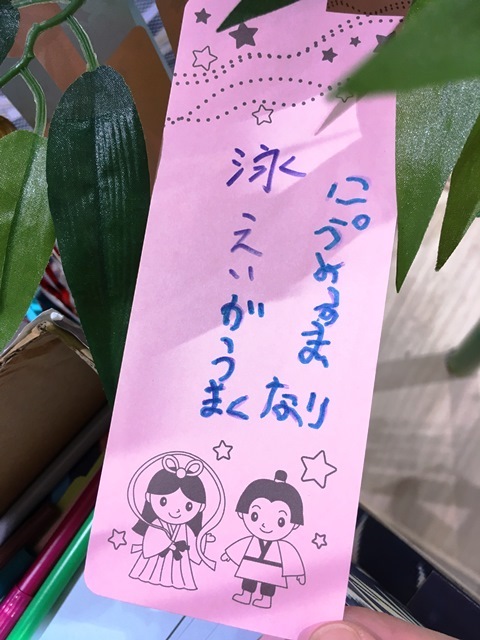 泳く えいがうまく
なり
ますように。